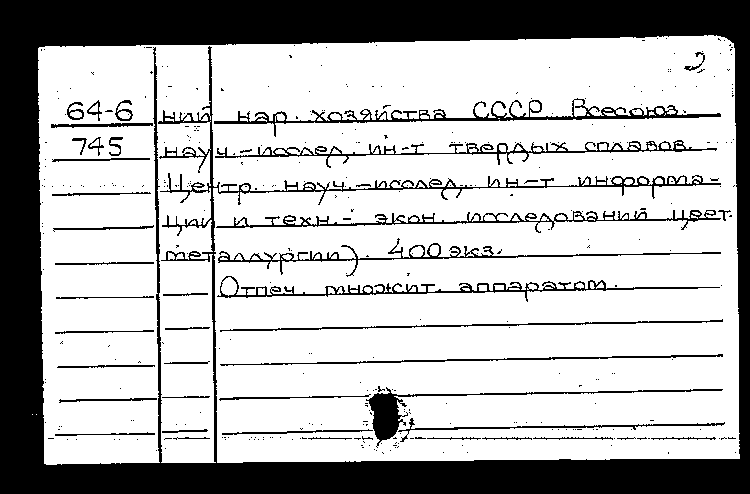 2
64-6 ний нар. хозяйства СССР Всесоюз.
745 науч.-исслед. ин-т твердых сплавов.
Центр. науч.-исслед. ин-т информа-
ции и техн.- экон. исследований цвет.
металлургии). 400 экз.
Отпеч. множит. аппаратом.